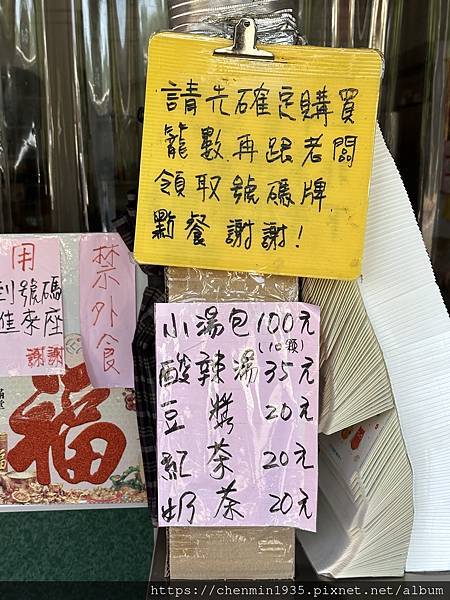 請先確定購買
籠數再跟老闆
領取號碼牌
點餐謝謝！
小湯包100元
(10顆)
酸辣湯35元
豆漿20元
紅茶20元
奶茶20元
禁外食
用
到號碼
進來座
謝謝
福
https://chenmin1935.pixnet.net/album